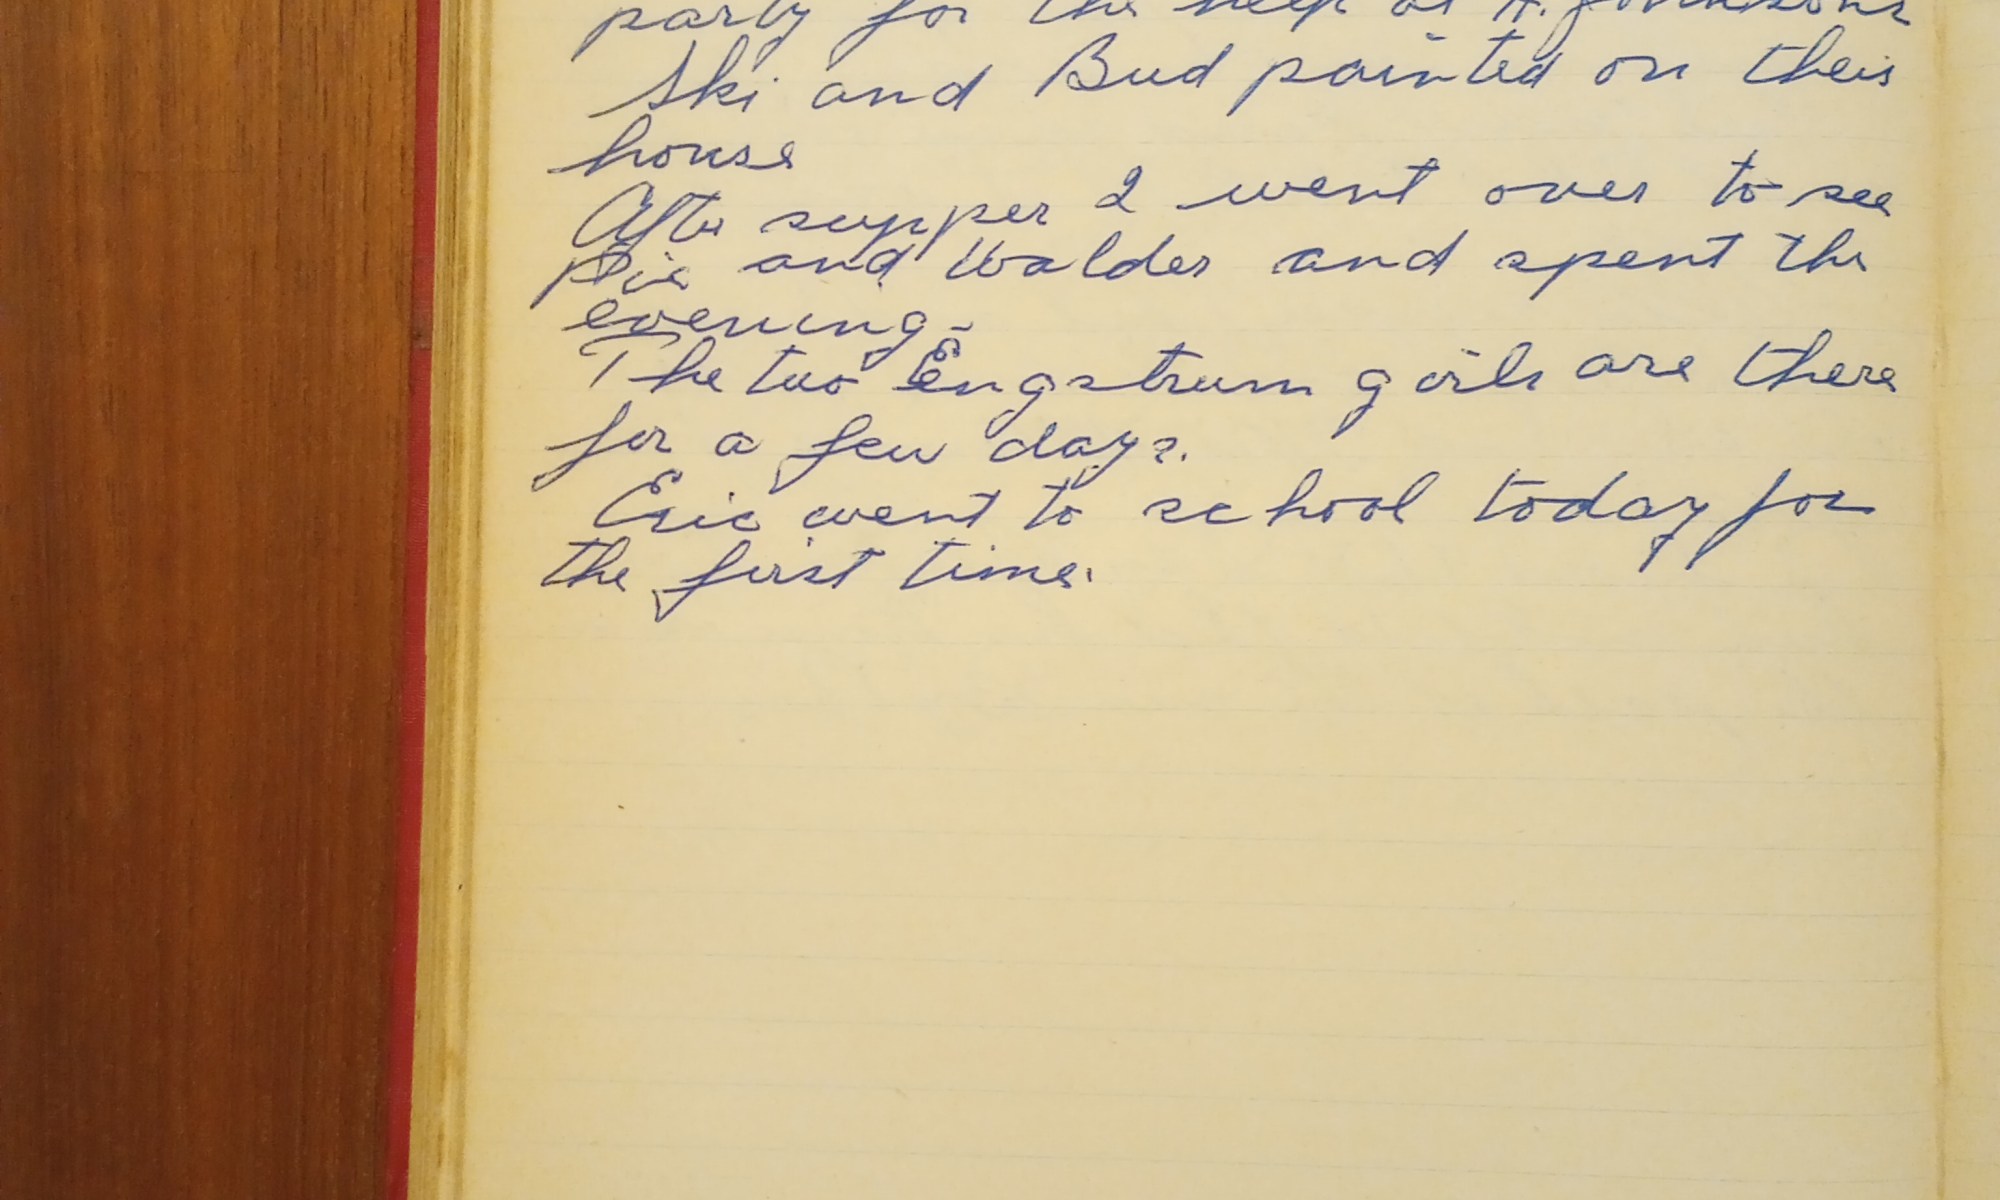 party for the help at H. Johnksons
Ski and Bud painted on their
house
After supper I went over to see
Pie and Walder and spent the
evening.
The two Engstrum girls are there
for a few days.
Eric went to school today for
the first time.